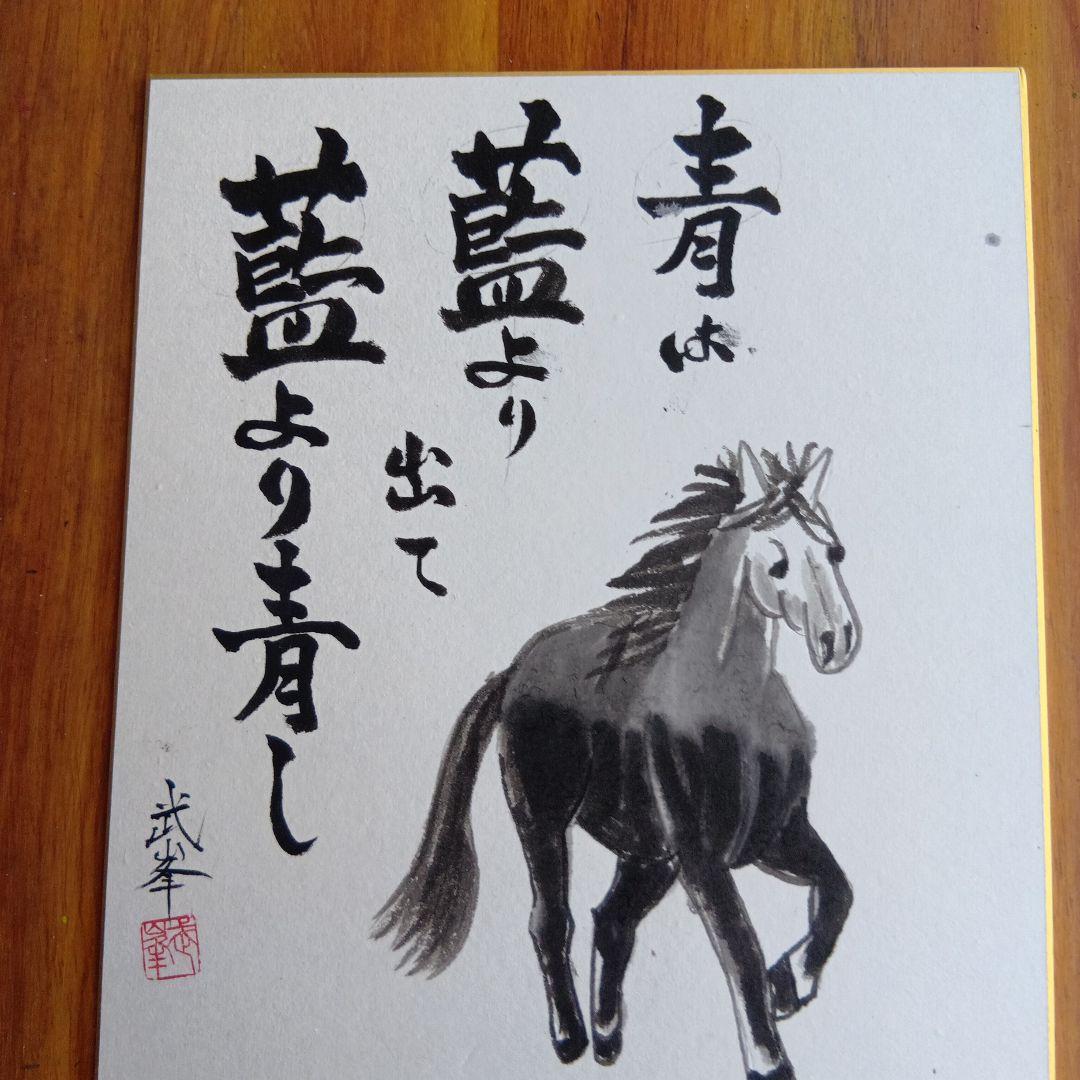 青は
藍より
出て
藍より青し
武峯
武峯